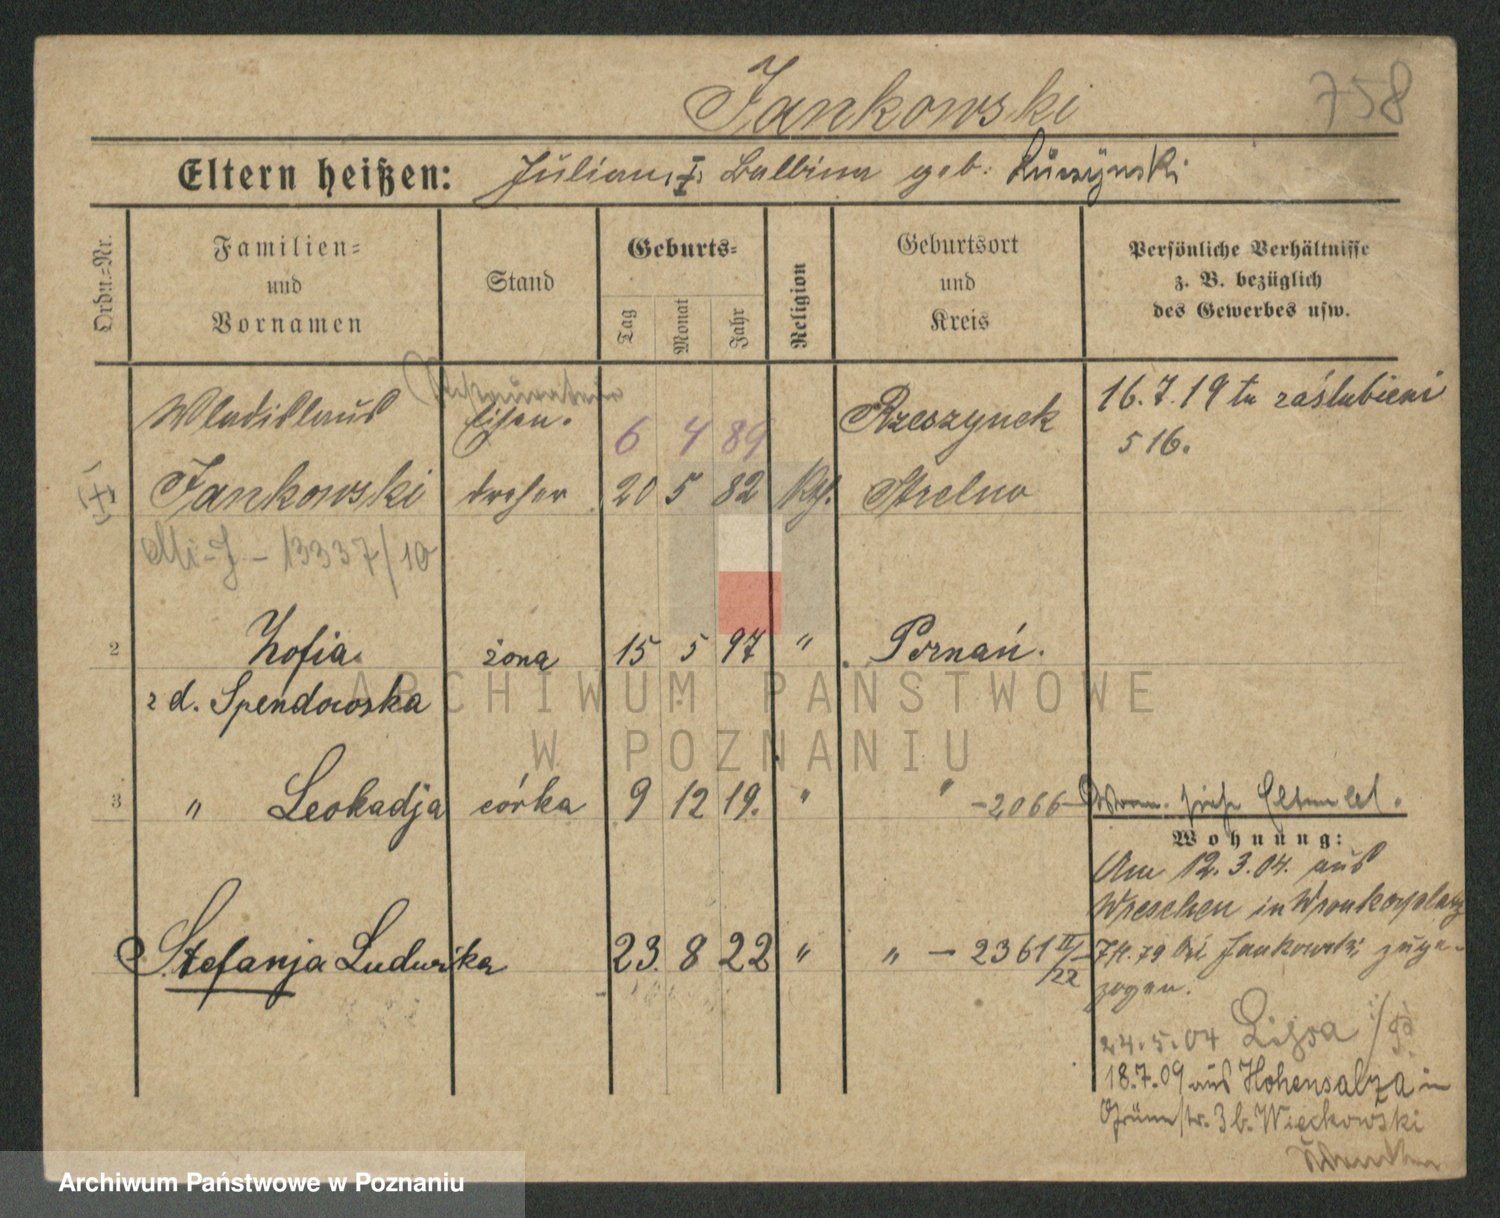 Jankowski
758
Eltern heißen: Julian, Balbina geb.
Ordn.=Nr.
Familien=
und
Vornamen
Stand
Geburts=
Tag
Monat
Jahr
Religion
Geburtsort
und
Kreis
Persönliche Verhältnisse
z. B. bezüglich
des Gewerbes usw.
Wladislaus
Eisen-
6 4 89
Rzeszynek
16.7.19 tu zaślubieni
516.
Jankowski
dreher
20 5 82
Kth.
Strelno
13337/10
2
Zofia
żona
15 5 97 "
Poznań.
z d. Spendowska
ARCHIWUM PAŃSTWOWE
W POZNANIU
3
" Leokadja
córka
9 12 19. "
" -2066-
Wohnung:
Am 12.3.04. aus
Wreschen in Wronkerplatz
Stefanja Ludwika
23. 8 22 "
" - 2361 II/22
bei Jankowski zuge-
zogen.
24.5.04
18.7.09 aus Hohensalza in
Grünestr. 3 b. Wieckowski
Archiwum Państwowe w Poznaniu